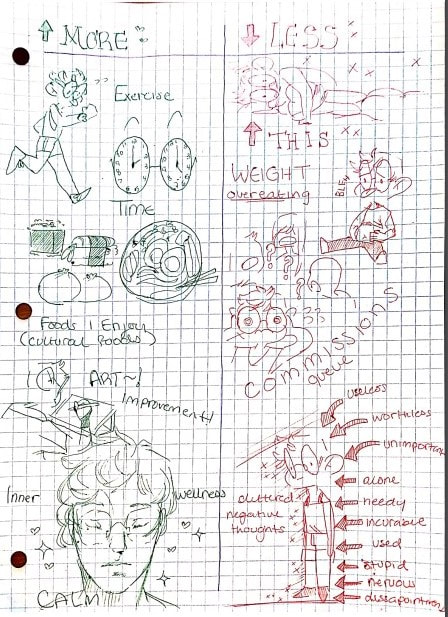 MORE
Exercise
Time
Foods I Enjoy
(cultural foods)
ART~!
Improvement!
Inner
wellness
CALM
LESS
THIS
WEIGHT
overeating
BLEH
? ? ? ?
??
commissions
queue
cluttered
negative
thoughts
useless
worthless
unimportant
alone
needy
incurable
used
stupid
nervous
dissapointment